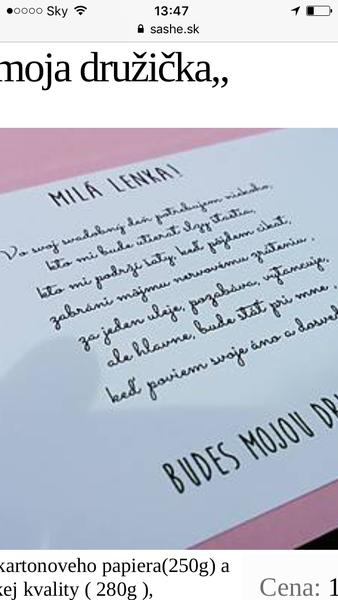 Sky 13:47
sashe.sk
moja družička,,
MILÁ LENKA!
Vo svoj svadobný deň potrebujem niekoho,
kto mi bude utierať slzy šťastia,
kto mi podrží šaty, keď pôjdem cikať,
zabráni môjmu nervovému zrúteniu,
za jeden uleje, pozabáva, vytancuje,
ale hlavne, bude stáť pri mne,
keď poviem svoje áno a dosved
BUDEŠ MOJOU DR
kartonoveho papiera(250g) a
kej kvality ( 280g ),
Cena: 1